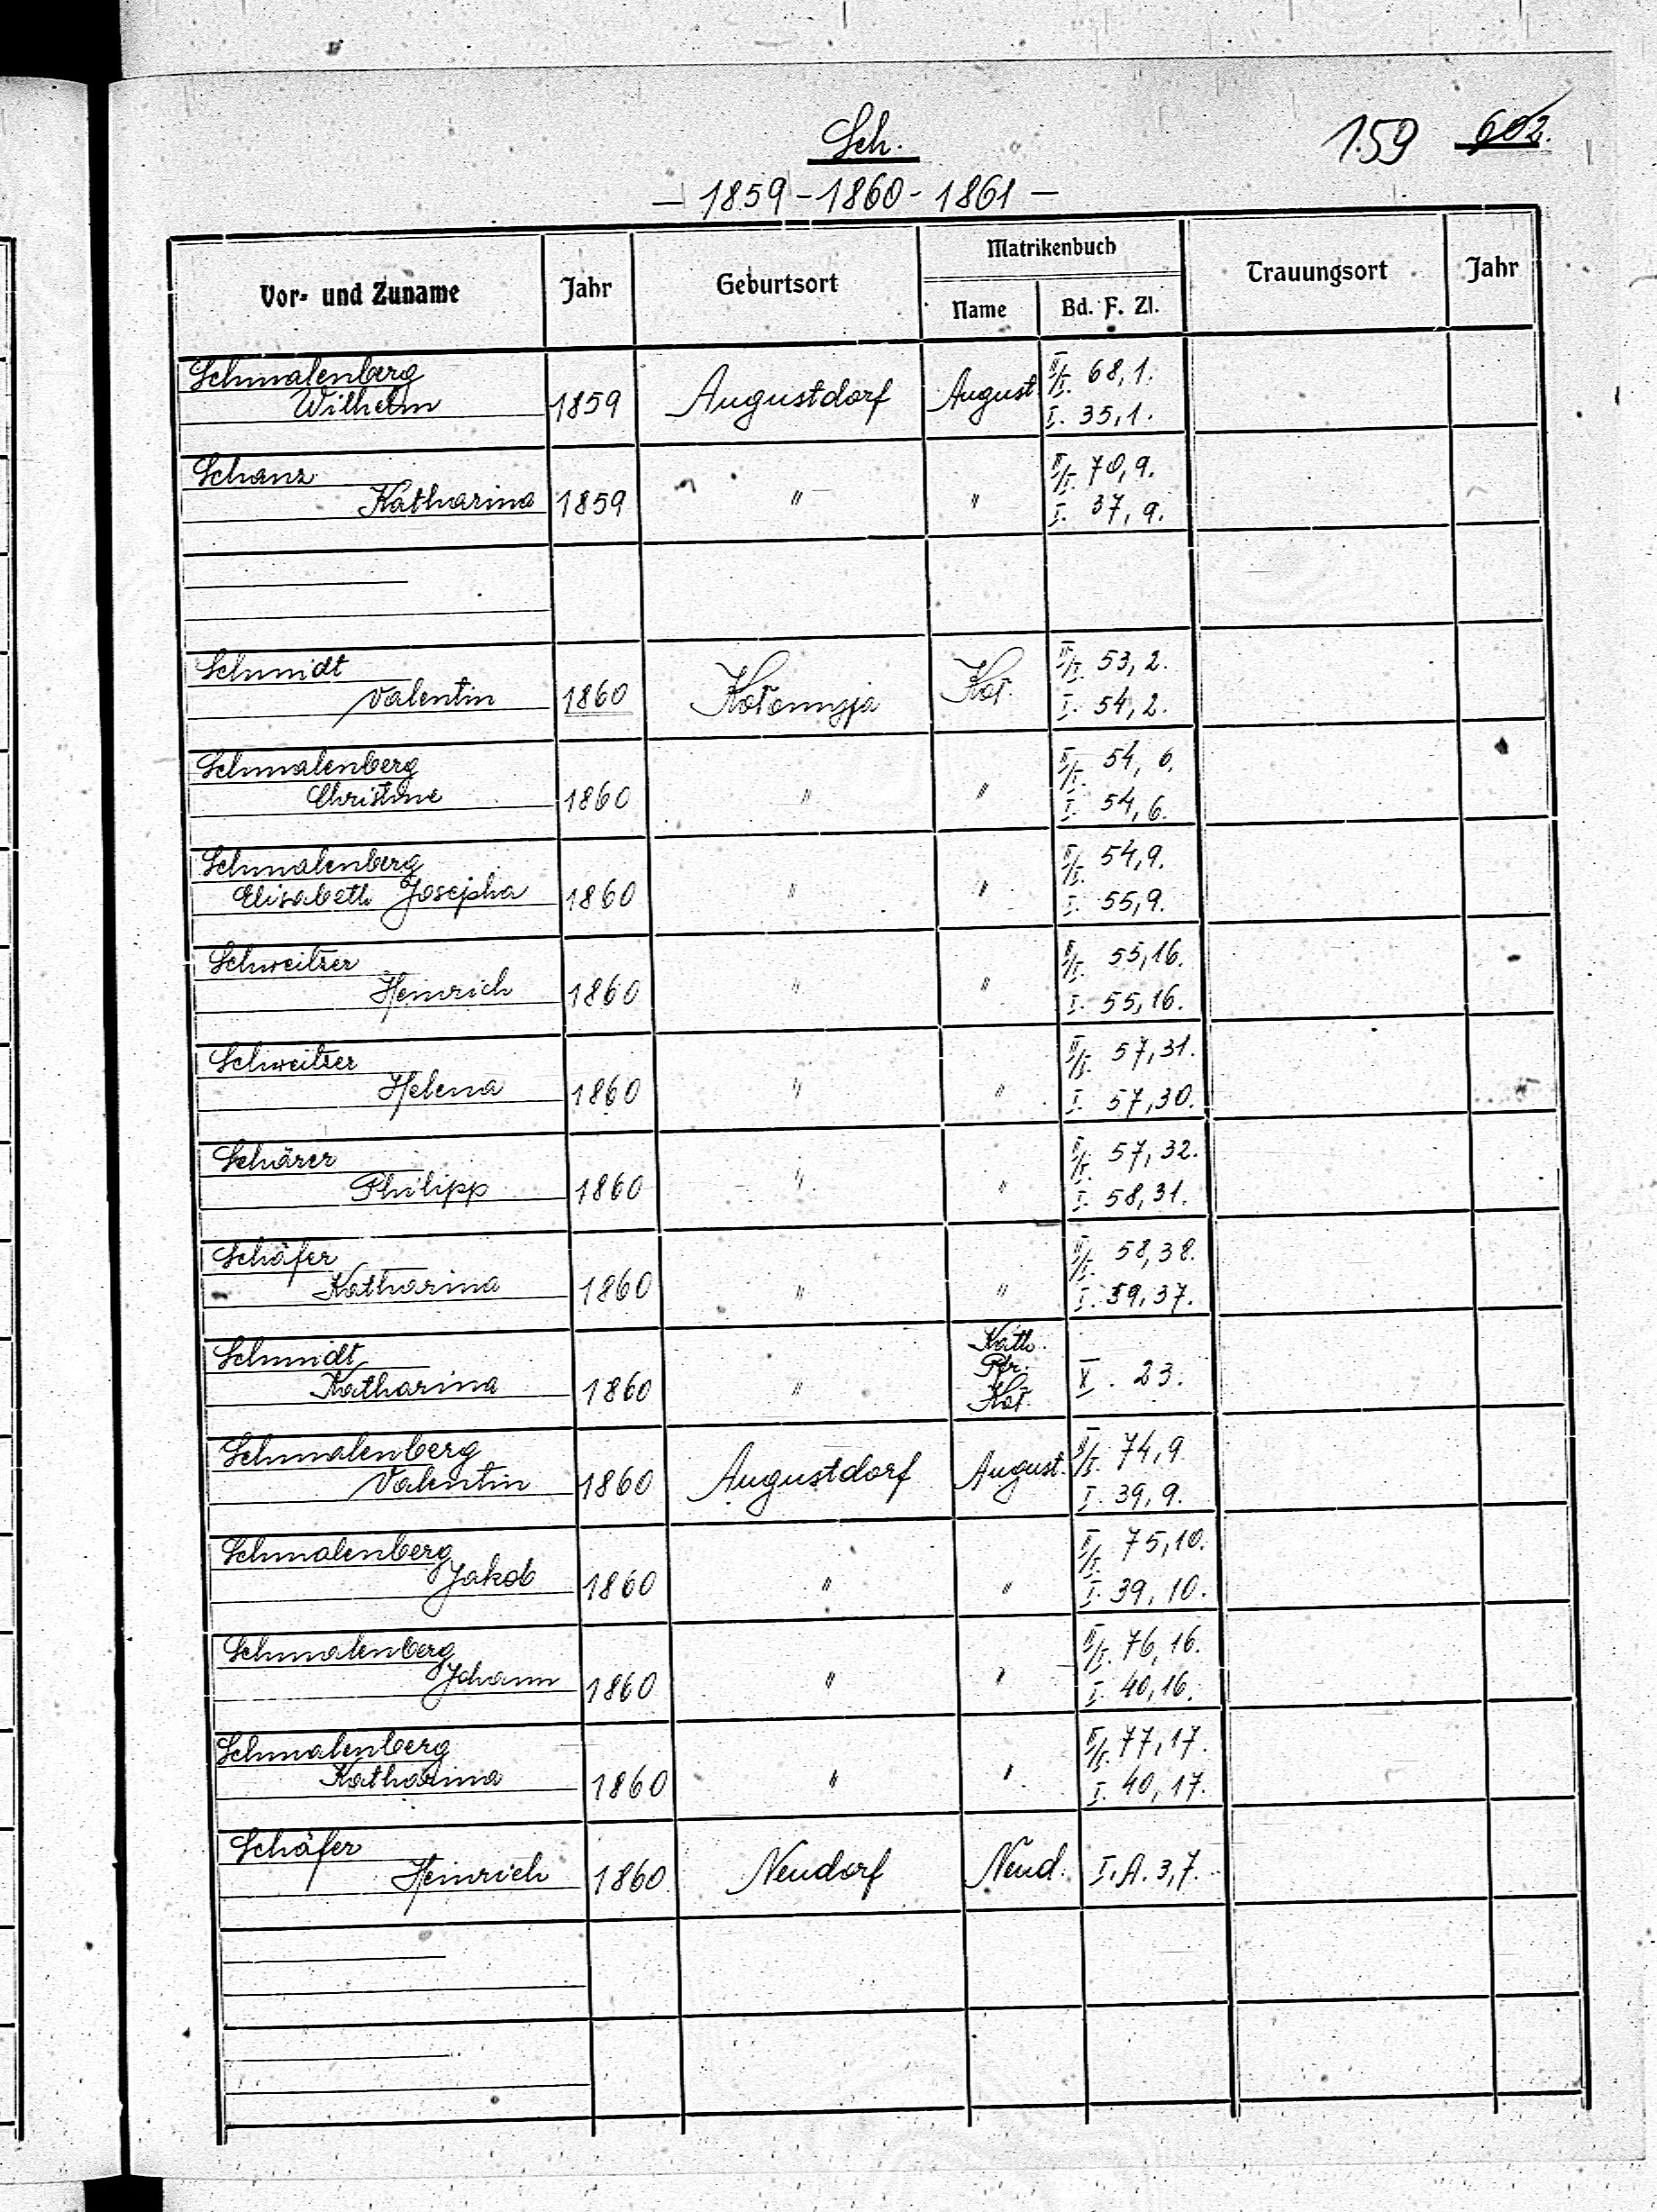 Sch.
159 602.
— 1859 - 1860 - 1861 —
Vor- und Zuname Jahr Geburtsort Matrikenbuch Trauungsort Jahr
Name Bd. F. Zl.
Schmalenberg II/I. 68,1.
Wilhelm 1859 Augustdorf August. I. 35,1.
Schanz II/I. 70,9.
Katharina 1859 " " I. 37,9.
Schmidt II/I. 53,2.
Valentin 1860 Kołomyja Koł. I. 54,2.
Schmalenberg II/I. 54,6.
Christine 1860 " " I. 54,6.
Schmalenberg II/I. 54,9.
Elisabeth Josepha 1860 " " I. 55,9.
Schweitzer II/I. 55,16.
Heinrich 1860 " " I. 55,16.
Schweitzer II/I. 57,31.
Helena 1860 " " I. 57,30.
Schärer II/I. 57,32.
Philipp 1860 " " I. 58,31.
Schäfer II/I. 58,38.
Katharina 1860 " " I. 59,37.
Schmidt Kath. Pfr. Koł.
Katharina 1860 " V. 23.
Schmalenberg II/I. 74,9.
Valentin 1860 Augustdorf August. I. 39,9.
Schmalenberg II/I. 75,10.
Jakob 1860 " " I. 39,10.
Schmalenberg II/I. 76,16.
Johann 1860 " " I. 40,16.
Schmalenberg II/I. 77,17.
Katharina 1860 " " I. 40,17.
Schäfer
Heinrich 1860 Neudorf Neud. I. A. 3,7.